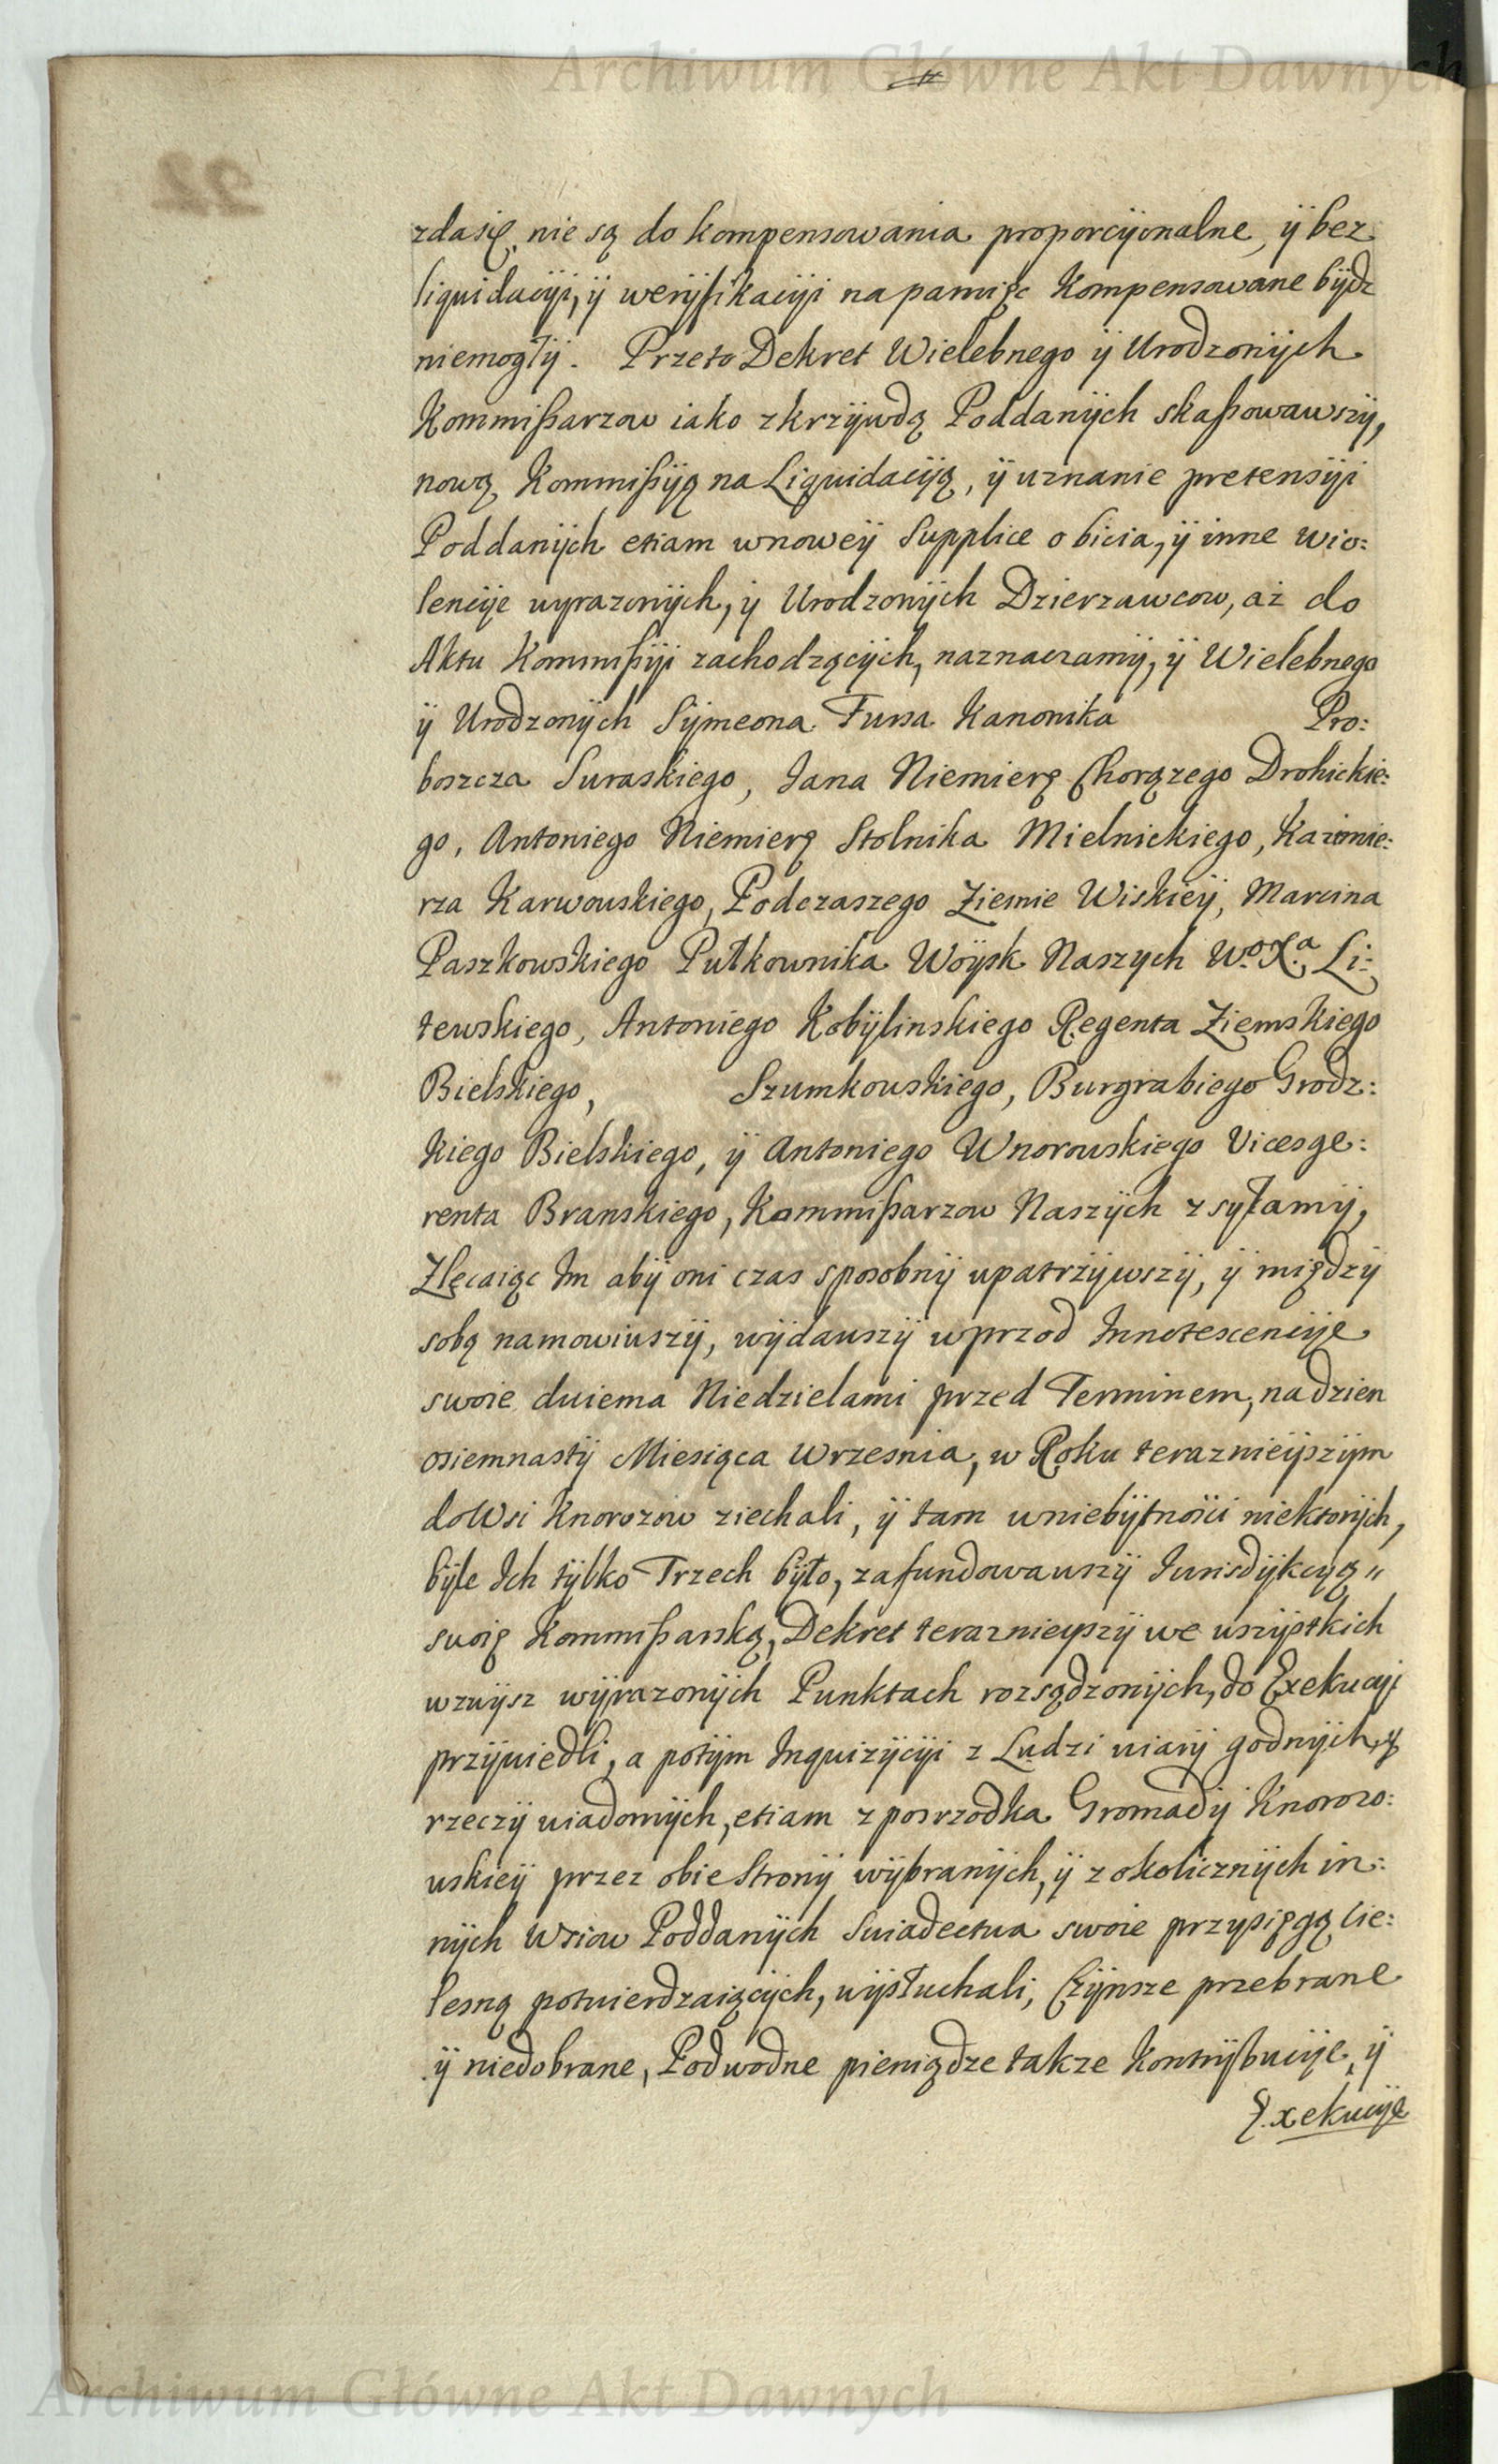 Archiwum Główne Akt Dawnych
zdasię, nie są do kompensowania proporcÿonalne, ÿ bez
liquidacÿi, ÿ werÿfikacÿi na pamięc kompensowane bÿdz
niemogłÿ. Przeto Dekret Wielebnego ÿ Urodzonÿch
Kommißarzow iako zkrzÿwdą Poddanÿch skaßowawszÿ,
nową Kommißÿą na Liquidacÿą, ÿ uznanie pretensÿi
Poddanÿch etiam wnoweÿ Supplice o bicia, ÿ inne wio:
lencÿe wyrazonÿch, ÿ Urodzonÿch Dzierzawcow, aż do
Aktu Kommißÿi zachodzącÿch, naznaczamÿ, ÿ Wielebnego
ÿ Urodzonÿch Sÿmeona Tursa Kanonika Pro:
boszcza Suraskiego, Jana Niemierę Chorązego Drohickie:
go, Antoniego Niemierę Stolnika Mielnickiego, Kazimie:
rza Karwowskiego, Podczaszego Ziemie Wiskieÿ, Marcina
Paszkowskiego Pułkownika Woÿsk Naszych W.o X.a Li:
tewskiego, Antoniego Kobÿlinskiego Regenta Ziemskiego
Bielskiego, Szumkowskiego, Burgrabiego Grodz:
kiego Bielskiego, ÿ Antoniego Wnorowskiego Vicesge:
renta Branskiego, Kommißarzow Naszÿch zsyłamÿ,
Zlęcaiąc Im abÿ oni czas sposobnÿ upatrzÿwszÿ, ÿ międzÿ
sobą namowiwszÿ, wÿdawszÿ wprzod Innotescencÿe
swoie dwiema Niedzielami przed Terminem, na dzien
osiemnastÿ Miesiąca Wrzesnia, w Roku teraznieÿszÿm
do Wsi Knorozow ziechali, ÿ tam wniebÿtnosci niektorÿch,
bÿle Ich tÿlko Trzech bÿło, zafundowawszÿ Jurisdÿkcyą
swoię Kommißarską, Dekret teraznieyszÿ we wszÿstkich
wzwÿsz wÿrazonÿch Punktach rozsądzonÿch, do Exekucÿi
przÿwiedli, a potÿm Inquizÿcÿi z Ludzi wiarÿ godnÿch, ÿ
rzeczÿ wiadomÿch, etiam z posrzodka Gromadÿ Knorozo:
wskieÿ przez obie Stronÿ wÿbranÿch, ÿ z okolicznÿch in:
nÿch Wsiow Poddanÿch Swiadectwa swoie przysięgą cie:
lesną potwierdzaiącÿch, wÿsłuchali, Czÿnsze przebrane
ÿ niedobrane, Podwodne pieniądze takze kontrÿbucÿe, ÿ
Exekucÿe
Archiwum Główne Akt Dawnych